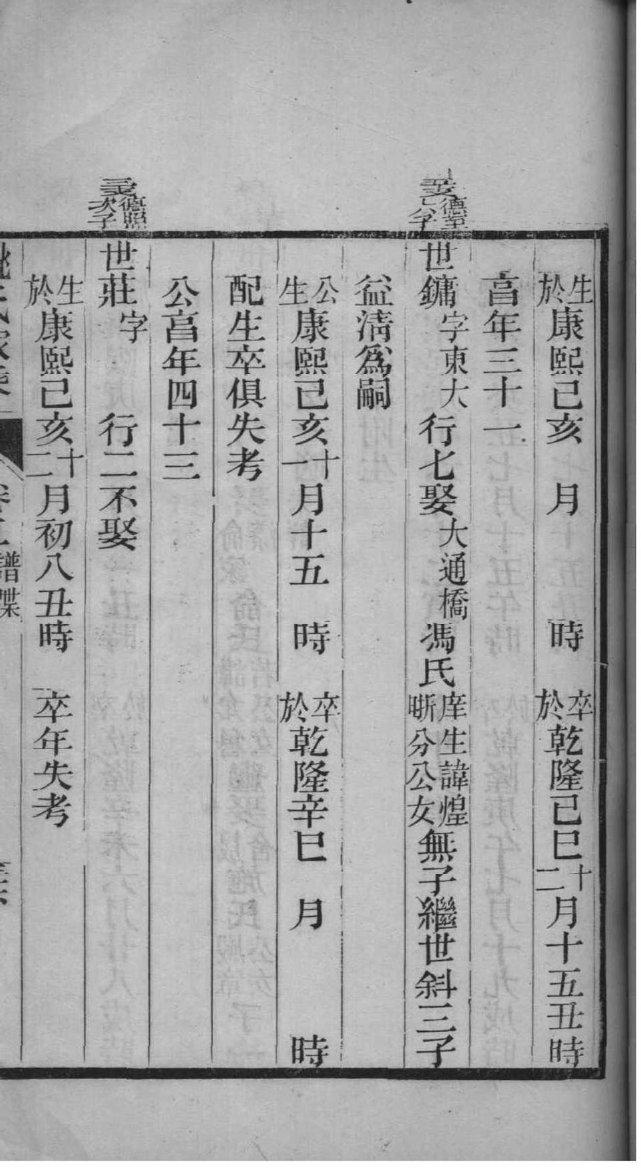 生於康熙己亥 月 時 卒於乾隆己巳十二月十五丑時
亯年三十一
德章六子
世鏞字東大行七娶大通橋馮氏庠生諱煌晣分公女無子繼世斜三子
益清爲嗣
公生康熙己亥十一月十五 時 卒於乾隆辛巳 月 時
配生卒俱失考
公亯年四十三
德照次子
世莊字 行二不娶
生於康熙己亥十二月初八丑時 卒年失考
姚氏家乘 譜牒